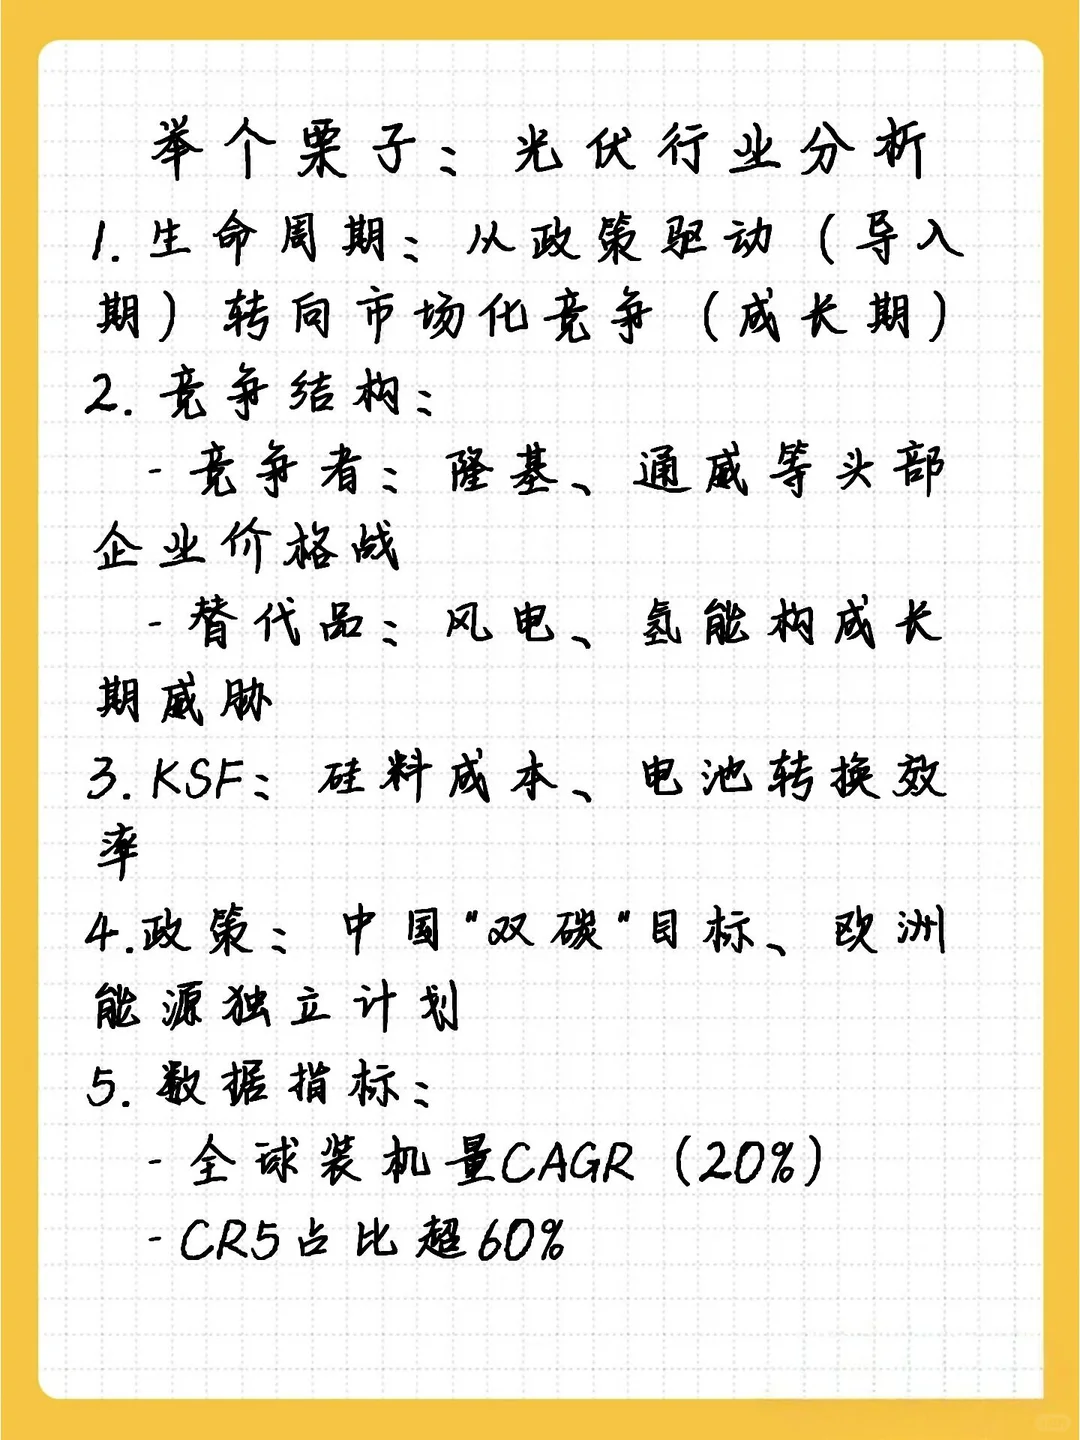 举个栗子：光伏行业分析
1. 生命周期：从政策驱动（导入
期）转向市场化竞争（成长期）
2. 竞争结构：
- 竞争者：隆基、通威等头部
企业价格战
- 替代品：风电、氢能构成长
期威胁
3. KSF：硅料成本、电池转换效
率
4.政策：中国"双碳"目标、欧洲
能源独立计划
5. 数据指标：
- 全球装机量CAGR（20%）
- CR5占比超60%